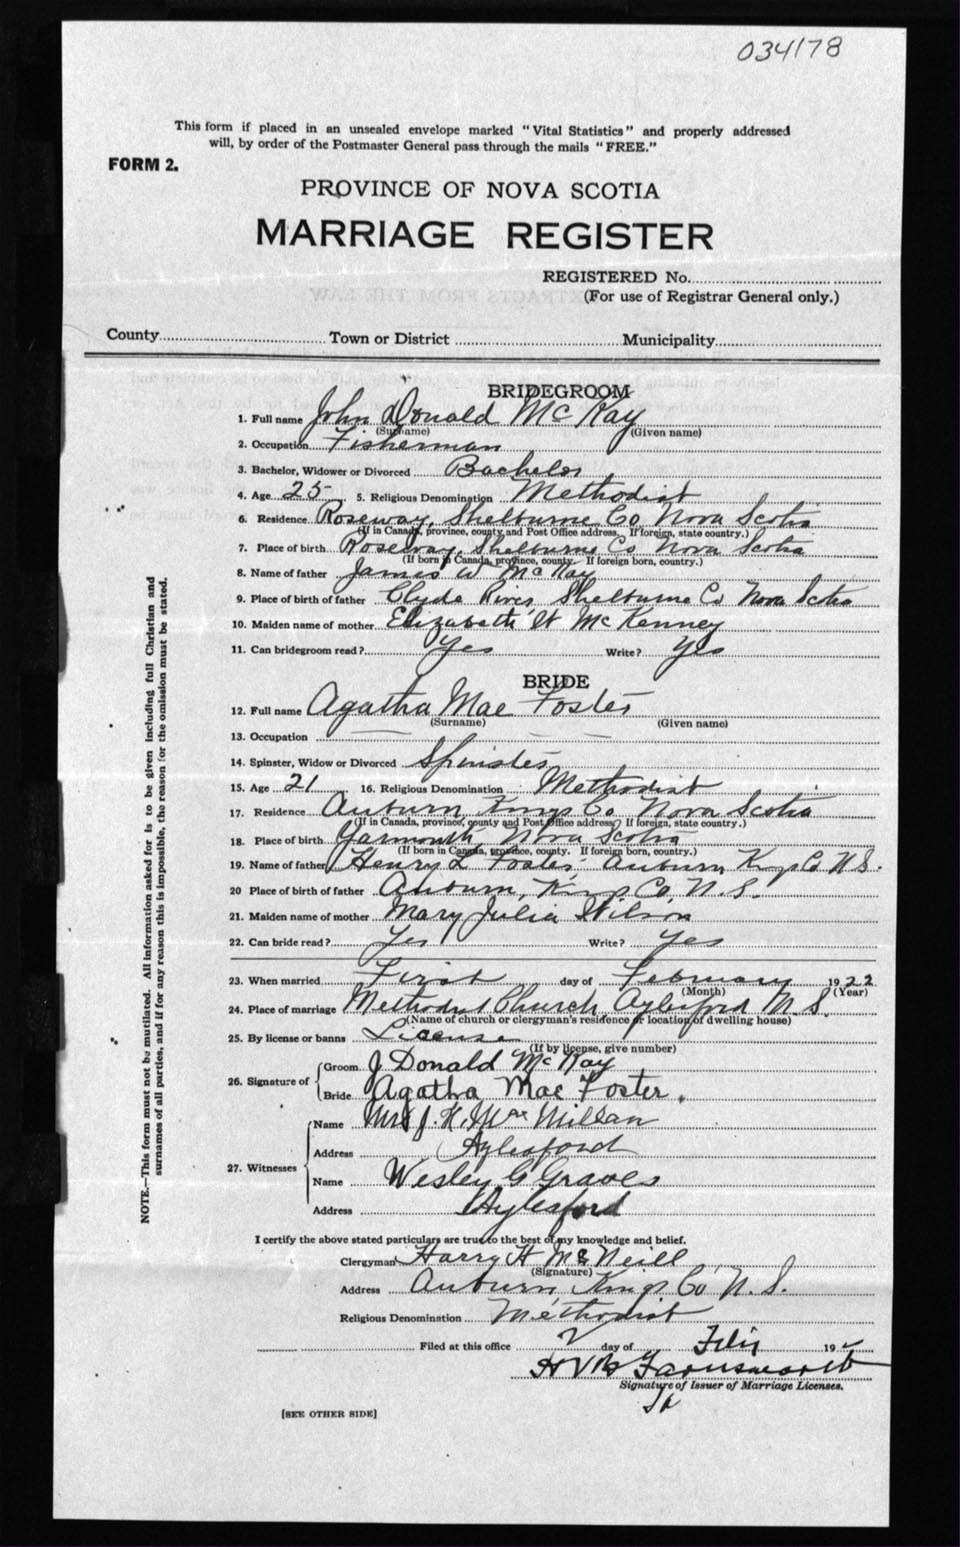 034178
This form if placed in an unsealed envelope marked "Vital Statistics" and properly addressed
will, by order of the Postmaster General pass through the mails "FREE."
FORM 2.
PROVINCE OF NOVA SCOTIA
MARRIAGE REGISTER
REGISTERED No.
(For use of Registrar General only.)
County Town or District Municipality
BRIDEGROOM
1. Full name John Donald McKay
(Surname) (Given name)
2. Occupation Fisherman
3. Bachelor, Widower or Divorced Bachelor
4. Age 25 5. Religious Denomination Methodist
6. Residence Roseway, Shelburne Co Nova Scotia
(If in Canada, province, county, and Post Office address. If foreign, state country.)
7. Place of birth Roseway, Shelburne Co Nova Scotia
(If born in Canada, province, county. If foreign born, country.)
8. Name of father James W McKay
9. Place of birth of father Clyde River Shelburne Co Nova Scotia
10. Maiden name of mother Elizabeth H McKenney
11. Can bridegroom read? Yes Write? Yes
BRIDE
12. Full name Agatha Mae Foster
(Surname) (Given name)
13. Occupation
14. Spinster, Widow or Divorced Spinster
15. Age 21 16. Religious Denomination Methodist
17. Residence Auburn Kings Co Nova Scotia
(If in Canada, province, county and Post Office address? If foreign, state country.)
18. Place of birth Yarmouth, Nova Scotia
(If born in Canada, province, county. If foreign born, country.)
19. Name of father Henry L Foster, Auburn Kings Co N.S.
20 Place of birth of father Auburn, Kings Co, N.S.
21. Maiden name of mother Mary Julia Wilson
22. Can bride read? Yes Write? Yes
23. When married First day of February 1922
(Month) (Year)
24. Place of marriage Methodist Church, Aylesford N.S.
(Name of church or clergyman's residence or location of dwelling house)
25. By license or banns License
(If by license, give number)
26. Signature of Groom J Donald McKay
Bride Agatha Mae Foster.
27. Witnesses Name Mrs J. H. MacMillan
Address Aylesford
Name Wesley G Graves
Address Aylesford
I certify the above stated particulars are true to the best of my knowledge and belief.
Clergyman Harry H McNeill
(Signature)
Address Auburn Kings Co N.S.
Religious Denomination Methodist
Filed at this office 2 day of 192
H V B Farnsworth
Signature of Issuer of Marriage Licenses.
[SEE OTHER SIDE]
NOTE.—This form must not be mutilated. All information asked for is to be given including full Christian and
surnames of all parties, and if for any reason this is impossible, the reason for the omission must be stated.